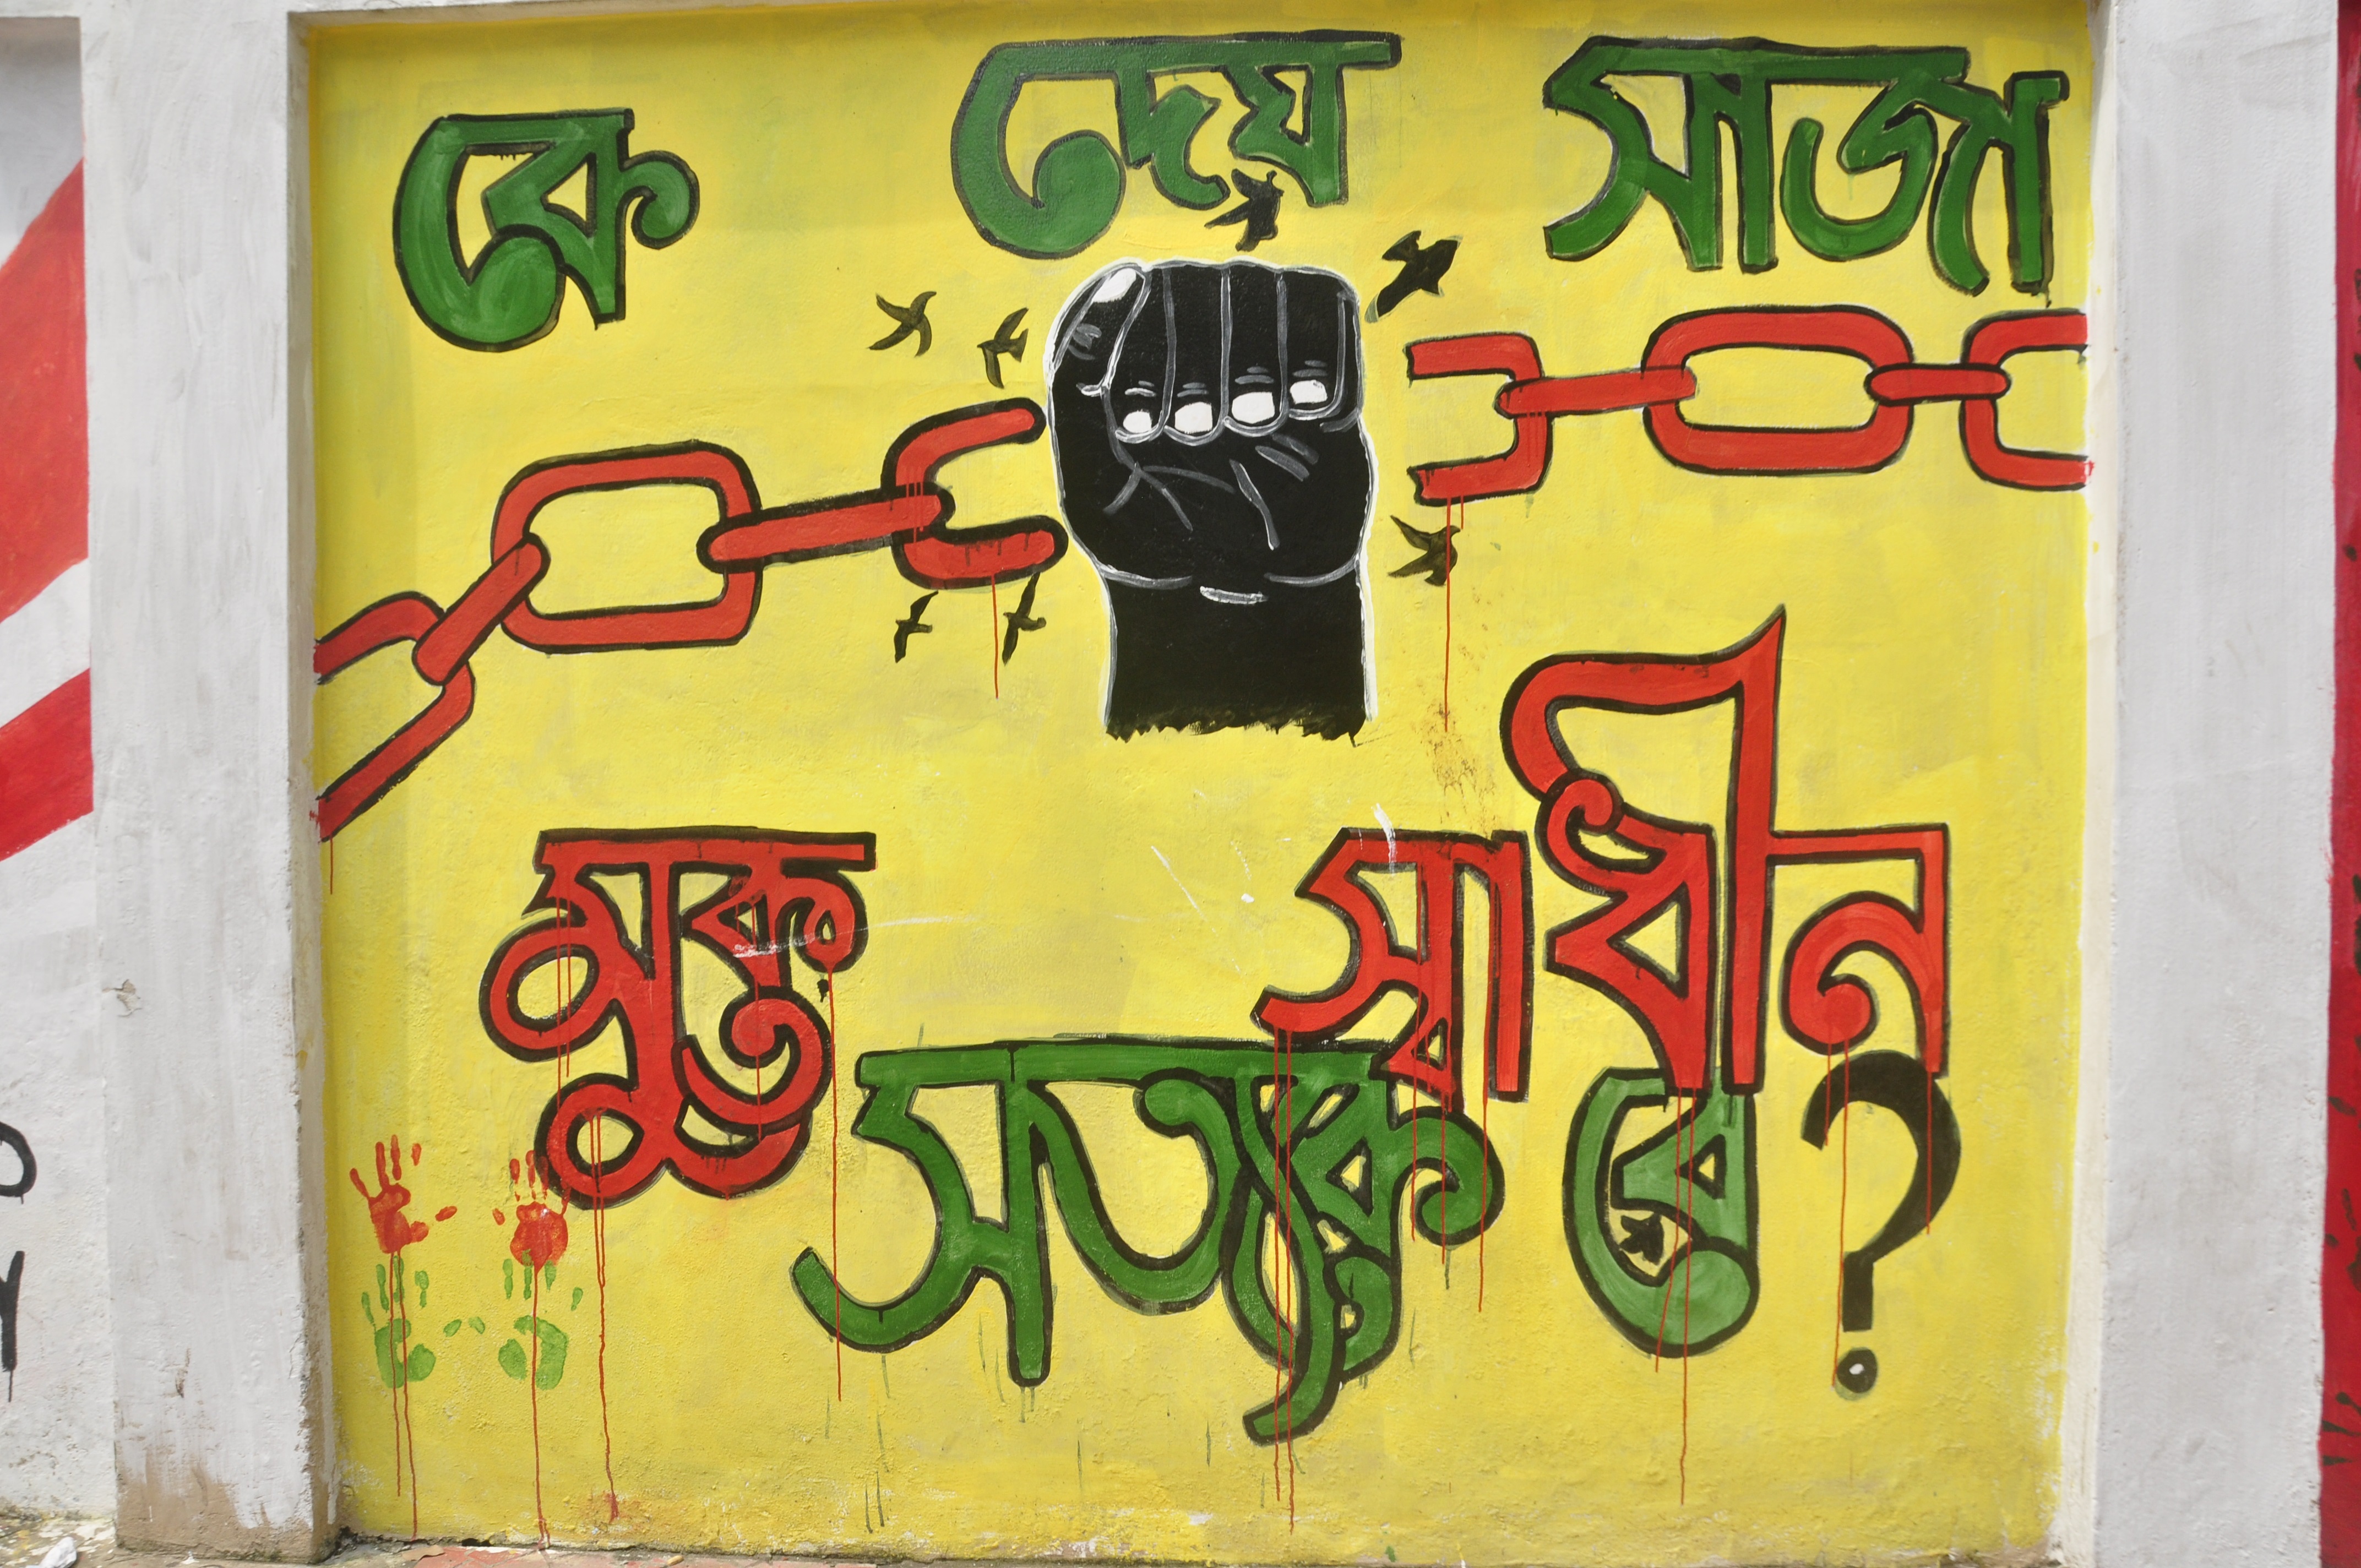 কে দেয় সাজা
মুক্ত স্বাধীন
সত্যকে রে?